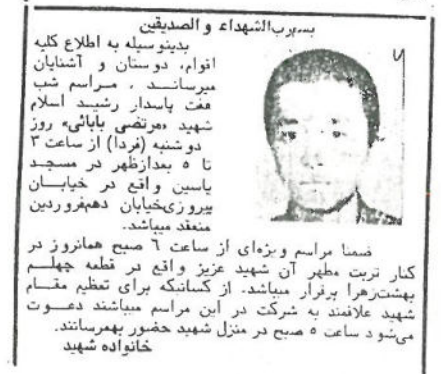 بسم رب الشهداء و الصدیقین
بدینوسیله به اطلاع کلیه
اقوام، دوستان و آشنایان
میرساند، مراسم شب
هفت پاسدار رشید اسلام
شهید «مرتضی بابائی» روز
دوشنبه (فردا) از ساعت ۳
تا ۵ بعدازظهر در مسجد
یاسین واقع در خیابان
پیروزی‌خیابان دهم‌فروردین
منعقد میباشد.
ضمنا مراسم ویژه‌ای از ساعت ۶ صبح همانروز در
کنار تربت مطهر آن شهید عزیز واقع در قطعه چهلم
بهشت‌زهرا برقرار میباشد. از کسانیکه برای تعظیم مقام
شهید علاقمند به شرکت در این مراسم میباشند دعوت
می‌شود ساعت ۵ صبح در منزل شهید حضور بهمرسانند.
خانواده شهید